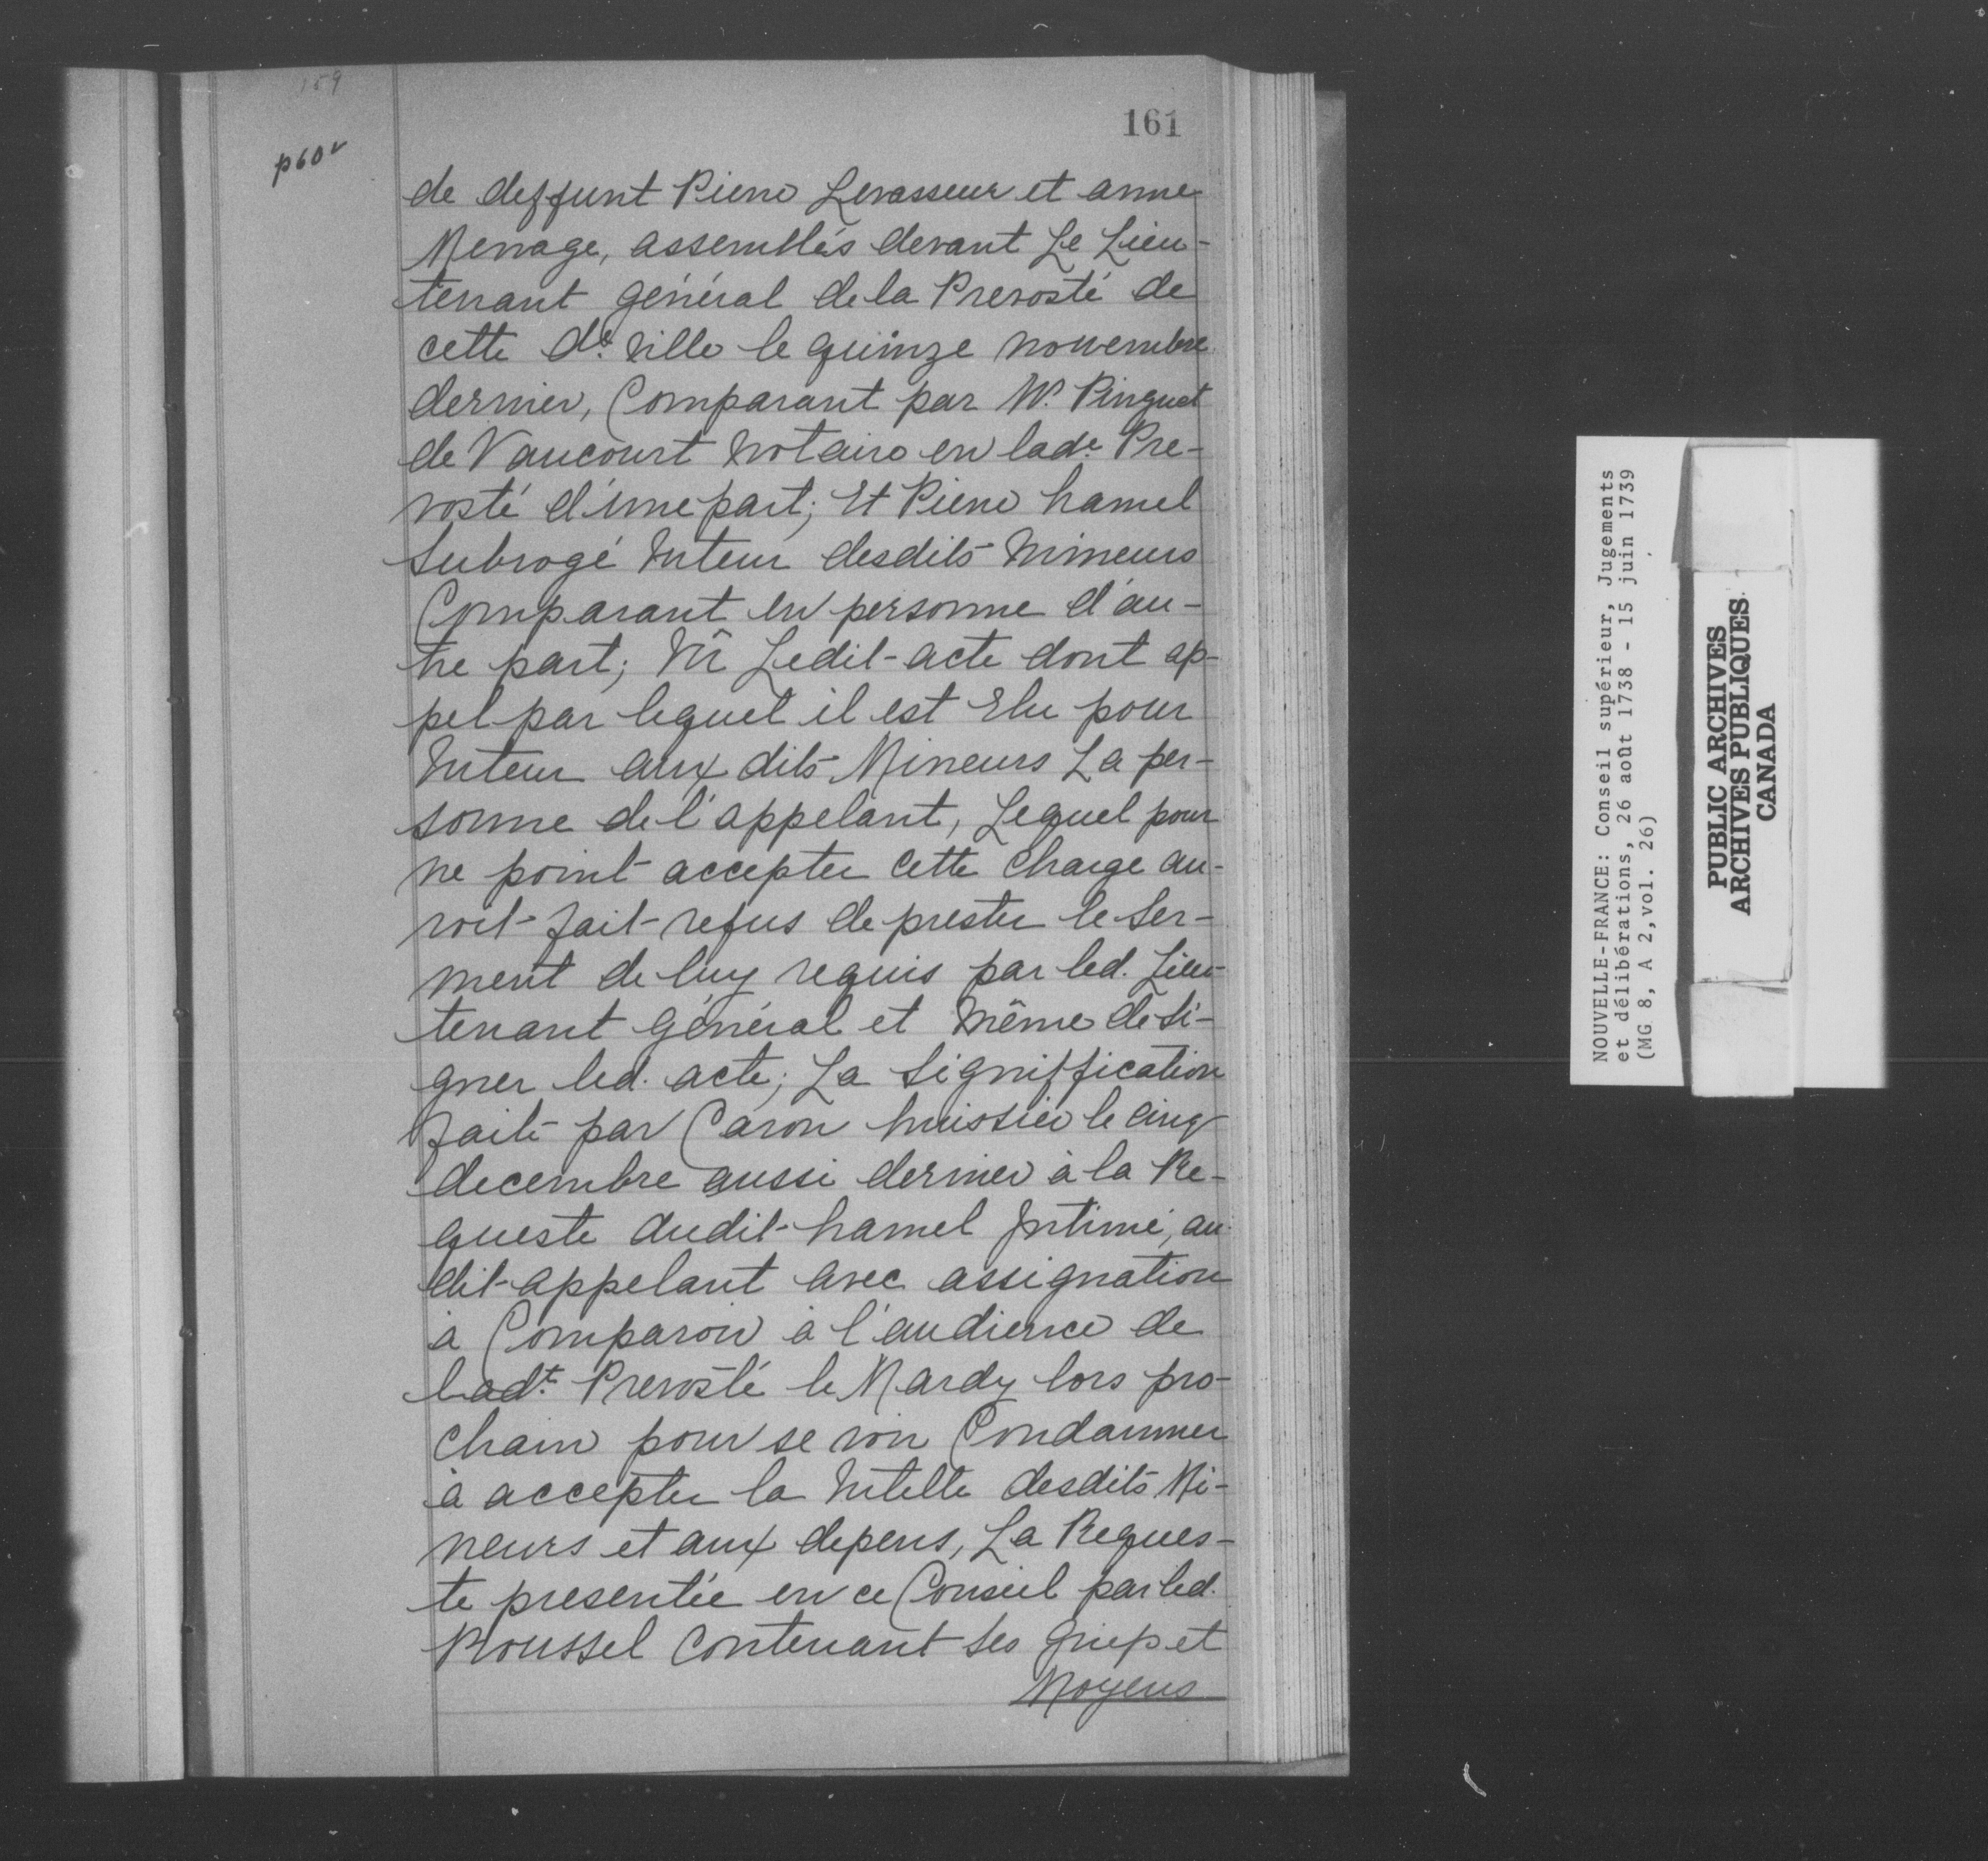 159
161
p60v
de deffunt Pierre Levasseur et anne
Menage, assemblés devant Le Lieu-
tenant général de la Prevosté de
cette de. Ville le quinze novembre
dernier, Comparant par Me. Pinguet
de Vaucourt Notaire en lade. Pre-
vosté d'une part; Et Pierre hamel
Subrogé Tuteur desdits Mineurs
Comparant en personne d'au-
tre part; Vû Ledit acte dont ap-
pel par lequel il est Elu pour
Tuteur aux dits Mineurs La per-
sonne de l'appelant, Lequel pour
ne point accepter cette Charge au-
roit fait refus de prester le Ser-
ment de luy requis par led. Lieu-
tenant général et Même de Si-
gner led. acte; La Signiffication
faite par Caron huissier le cinq
decembre aussi dernier à la Re-
queste dudit hamel Intimé, au-
dit appelant avec assignation
à Comparoir à l'audience de
ladt. Prevosté le Mardy lors pro-
chain pour se voir Condamner
à accepter la Tutelle desdits Mi-
neurs et aux depens, La Reques-
te presentée en ce Conseil par led.
Roussel Contenant Ses griefs et
Moyens
NOUVELLE-FRANCE: Conseil supérieur, Jugements
et délibérations, 26 août 1738 - 15 juin 1739
(MG 8, A 2,vol. 26)
PUBLIC ARCHIVES
ARCHIVES PUBLIQUES
CANADA